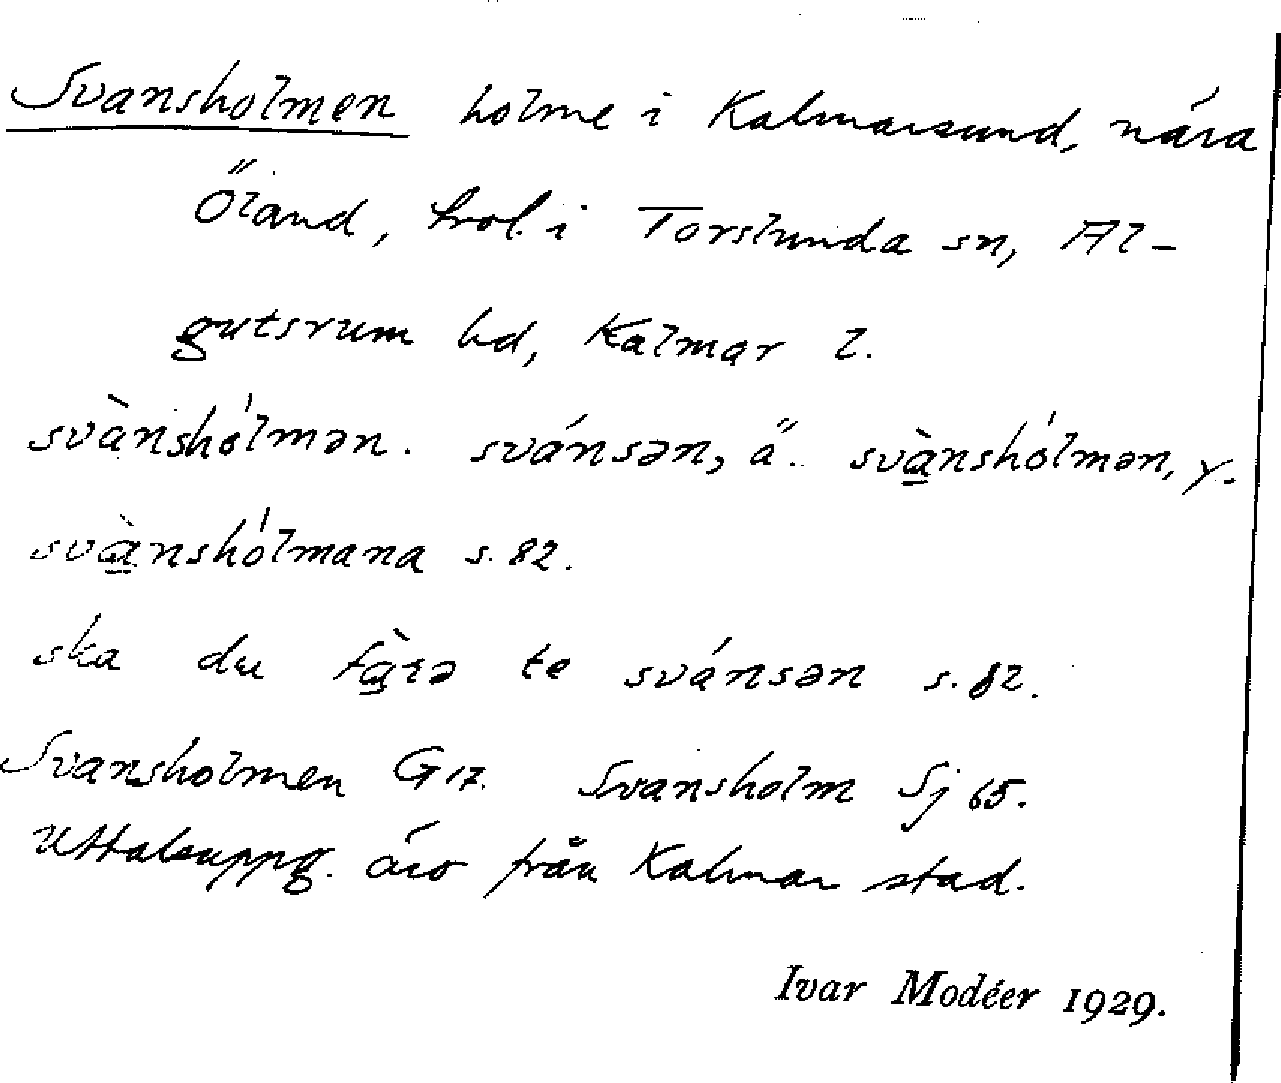 Svansholmen holme i Kalmarsund, nära
Öland, trol. i Torslunda sn, Al-
gutsrum hd, Kalmar l.
svànshólmən. svánsən, ä.. svàṉshólmən, y.
svàṉshólmana s. 82.
ska du fàrə te svánsən s. 82.
Svansholmen G 17. Svansholm Sj 65.
Uttalsuppg. äro från Kalmar stad.
Ivar Modéer 1929.